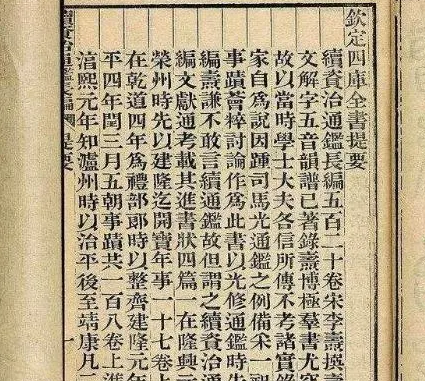 欽定四庫全書提要
續資治通鑑長編五百二十卷宋李燾撰
文解字五音韻譜已著錄燾博極羣書尤究
故以當時學士大夫各信所傳不考諸實錄
家自為説因踵司馬光通鑑之例備采一祖
事蹟薈粹討論作為此書以光修通鑑時先
編燾謙不敢言續通鑑故但謂之續資治
編文獻通考載其進書狀四篇一在隆興元
榮州時先以建隆迄開寶年事一十七卷上
在乾道四年為禮部郎時以整齊建隆元年
平四年閏三月五朝事蹟共一百八卷上進
淳熙元年知瀘州時以治平後至靖康凡二
續資治通鑑長編 提要 一